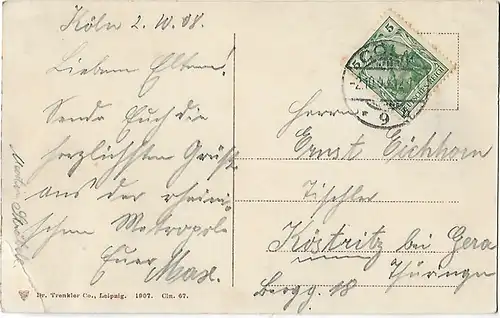 Köln 2. IV. 08.
Liebe Eltern!
Sende Euch die
herzlichsten Grüße
aus der rheini-
schen Metropole
Euer Max.
Dr. Trenkler Co., Leipzig. 1907. Cln. 67.
5 5
CÖLN
9
Herrn
Ernst Eichhorn
Tischler
Köstritz bei Gera
Bergg. 18 Thüringen